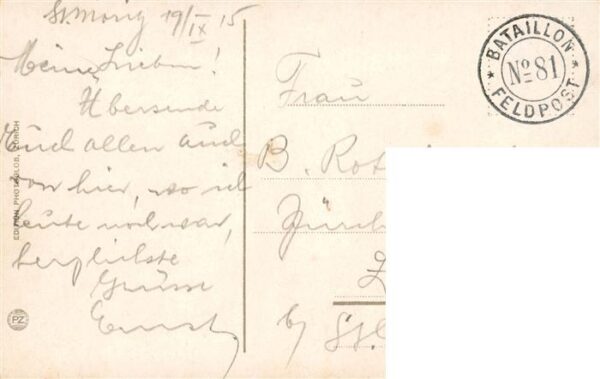 St. Moritz 19/IX 15
Meine Lieben!
Übersende
Euch allen auch
von hier, wo ich
heute noch war,
herzlichste
Grüsse
Ernst.
BATAILLON
No 81
FELDPOST
Frau
B. Rot
Zürch
b/
EDITION PHOTOGLOB, ZÜRICH
PZ